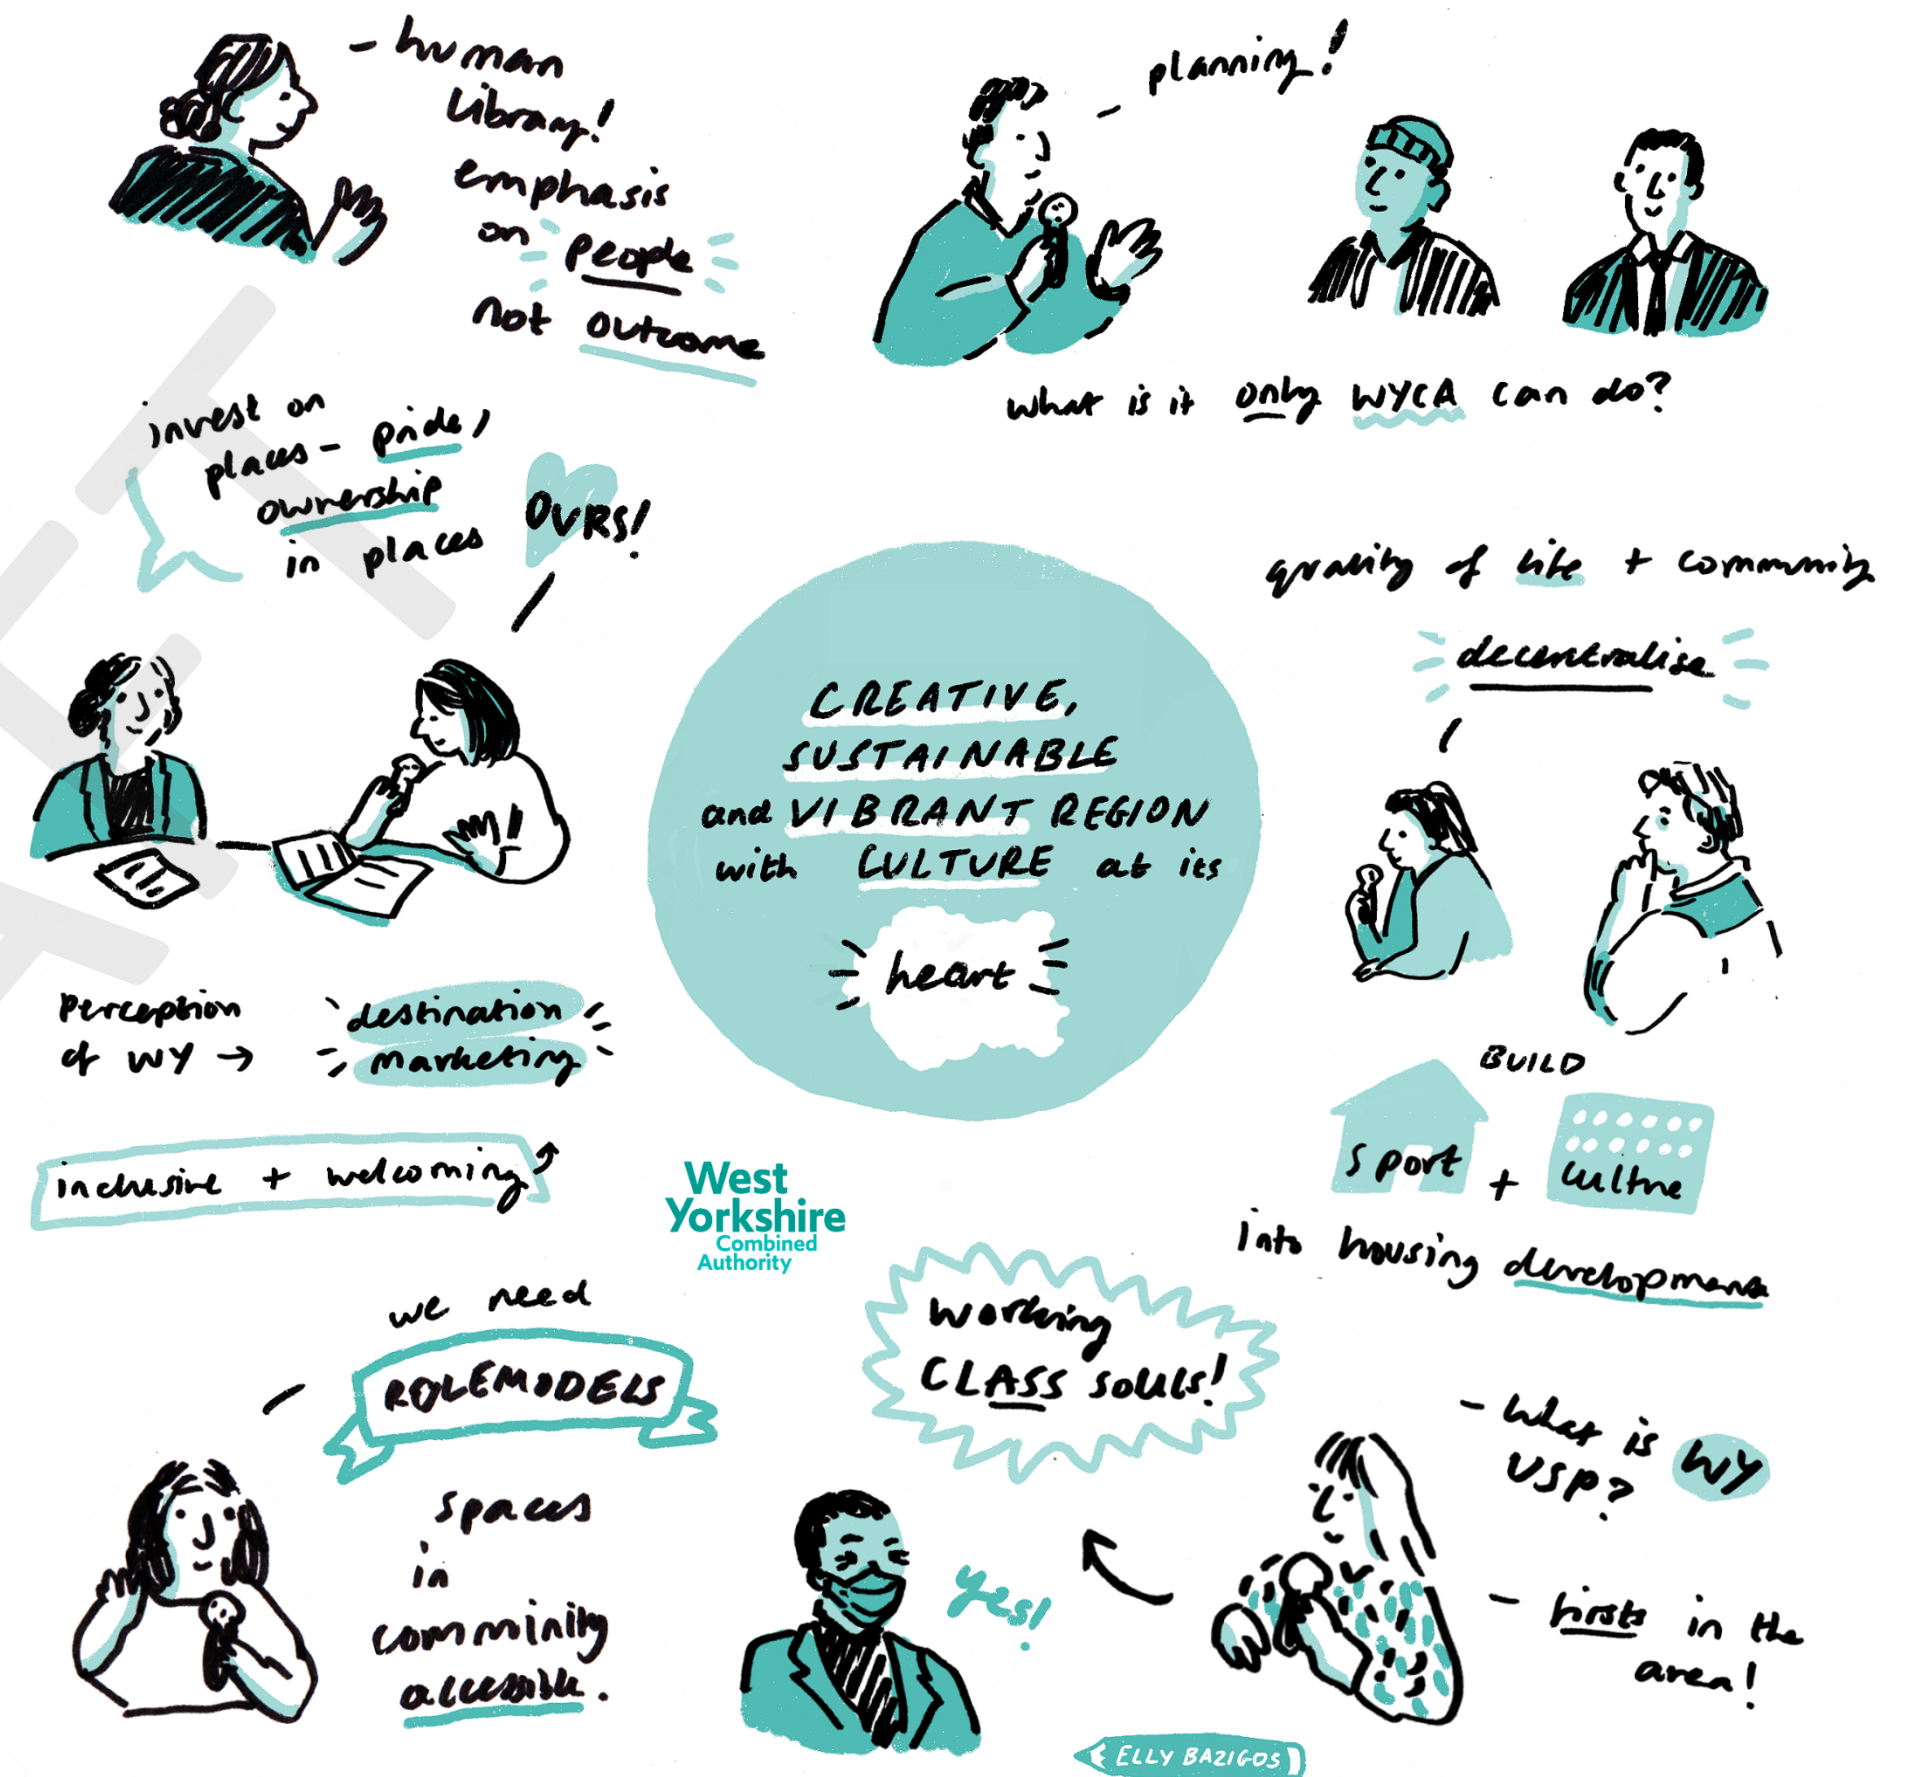 - human
library!
emphasis
on people
not outcome
- planning!
what is it only WYCA can do?
invest on
places - pride,
ownership
in places
OURS!
quality of life + community
decentralise
CREATIVE,
SUSTAINABLE
and VIBRANT REGION
with CULTURE at its
heart
Perception
of WY →
destination
marketing
inclusive + welcoming
BUILD
sport + culture
into housing development
West
Yorkshire
Combined
Authority
we need
ROLEMODELS
spaces
in
comminity
accessible.
working
CLASS souls!
yes!
- what is WY
USP?
- firsts in the
area!
ELLY BAZIGOS